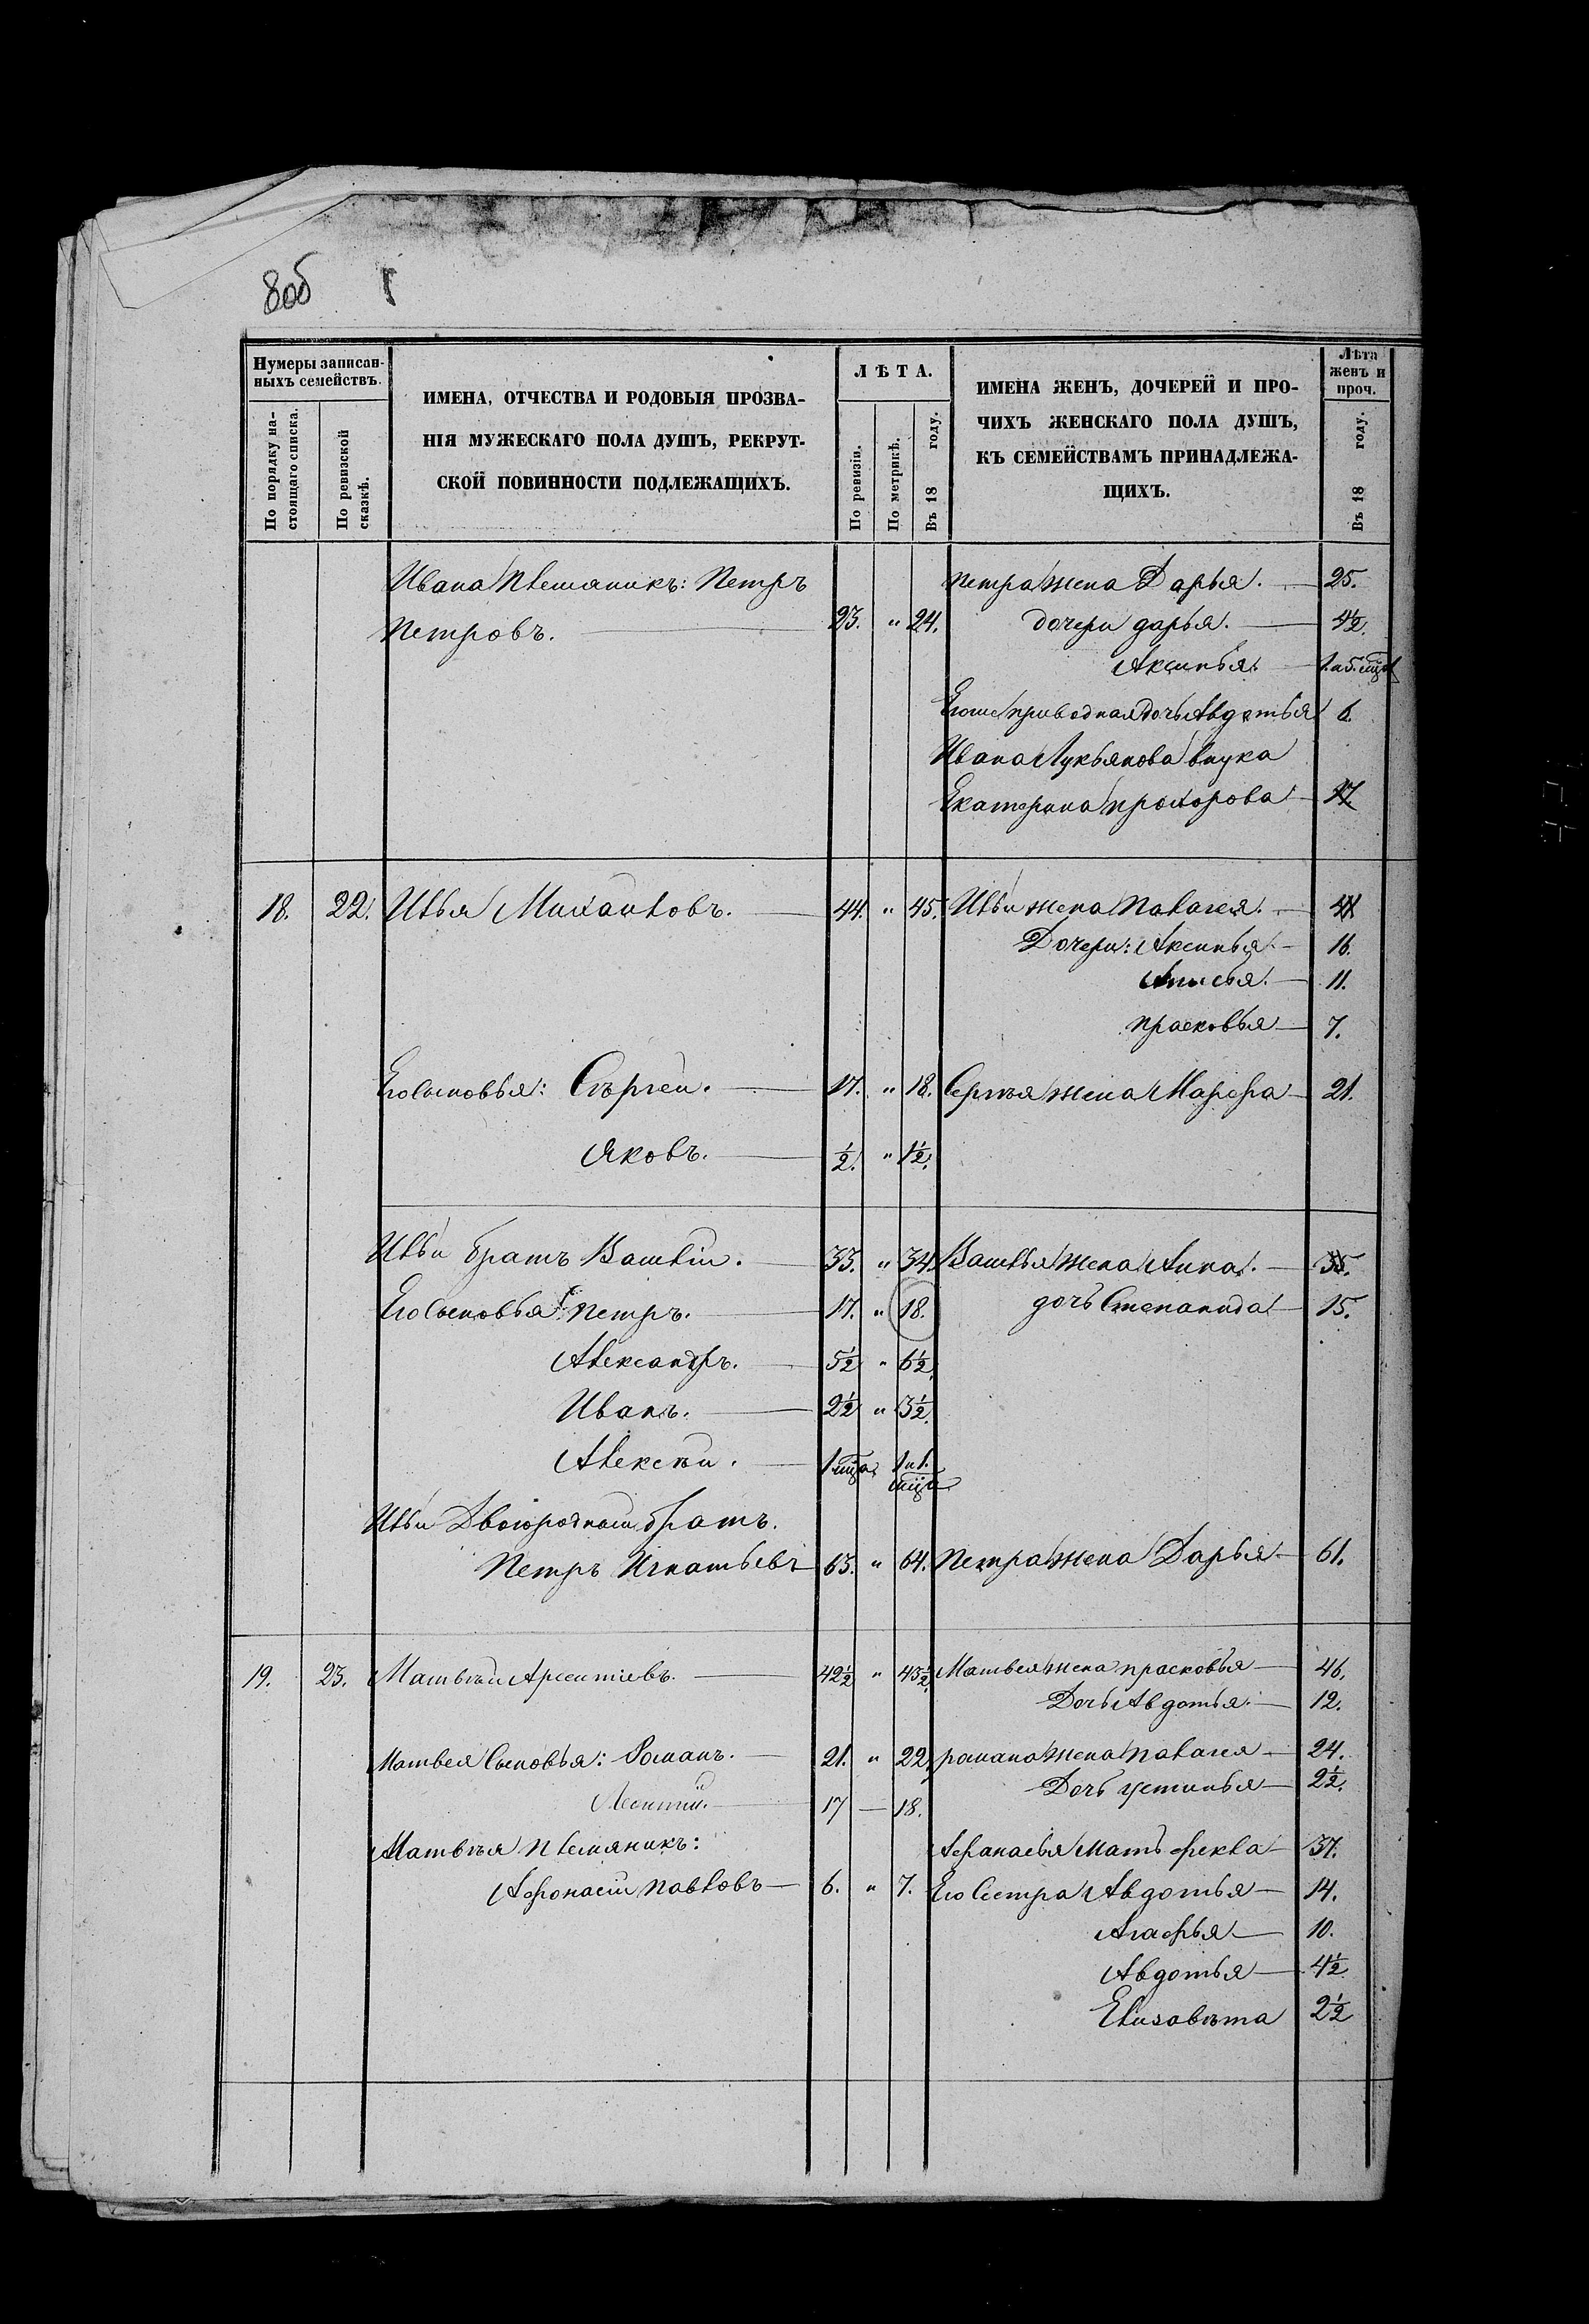 8об
Нумеры записан-
ныхъ семействъ.
По порядку на-
стоящаго списка.
По ревизской
сказкѣ.
ИМЕНА, ОТЧЕСТВА И РОДОВЫЯ ПРОЗВА-
НІЯ МУЖЕСКАГО ПОЛА ДУШЪ, РЕКРУТ-
СКОЙ ПОВИННОСТИ ПОДЛЕЖАЩИХЪ.
ЛѢТА.
По ревизіи.
По метрикѣ.
Въ 18 году.
ИМЕНА ЖЕНЪ, ДОЧЕРЕЙ И ПРО-
ЧИХЪ ЖЕНСКАГО ПОЛА ДУШЪ,
КЪ СЕМЕЙСТВАМЪ ПРИНАДЛЕЖА-
ЩИХЪ.
Лѣта
женъ и
проч.
Въ 18 году.
Ивана племяникъ: Петръ Петра жена Дарья. 25.
Петровъ. 23. " 24. дочери дарья. 4½.
Аксинья.
приводная дочь Авдотья 6.
Ивана Лукьянова внука
Екатерина прохорова
18. 22. Илья Михаиловъ. 44. " 45. Ильи жена Палагея.
Дочери: Аксинья 16.
Анисья. 11.
прасковья 7.
Его сыновья: Сѣргеи. 17. " 18. Сергѣя жена Марфа 21.
Яковъ. ½. " 1½.
Ильи братъ Василіи. 33. " 34. Василья жена Анна. 35.
Его сыновья: петръ. 17. " 18. дочь Степанида 15.
Александръ. 5½ " 6½.
Иванъ. 2½ " 3½.
Алексѣи. 1 мца. 1 и 1. мца
Ильи Двоюродныи братъ.
Петръ Игнатьевъ 63. " 64. Петра жена Дарья 61.
19. 23. Матвѣи Арсентіевъ. 42½ " 43½. Матвея жена прасковья 46.
Дочь Авдотья. 12.
Матвея Сыновья: Романъ. 21. " 22. романа жена палагея 24.
Дочь устинья 2½.
Леонтіи. 17 — 18.
Матвѣя племяникъ: Афанасья мать фекла 37.
Афонасіи павловъ 6. " 7. Его Сестра Авдотья 14.
Агафья 10.
Авдотья 4½
Елизавѣта 2½